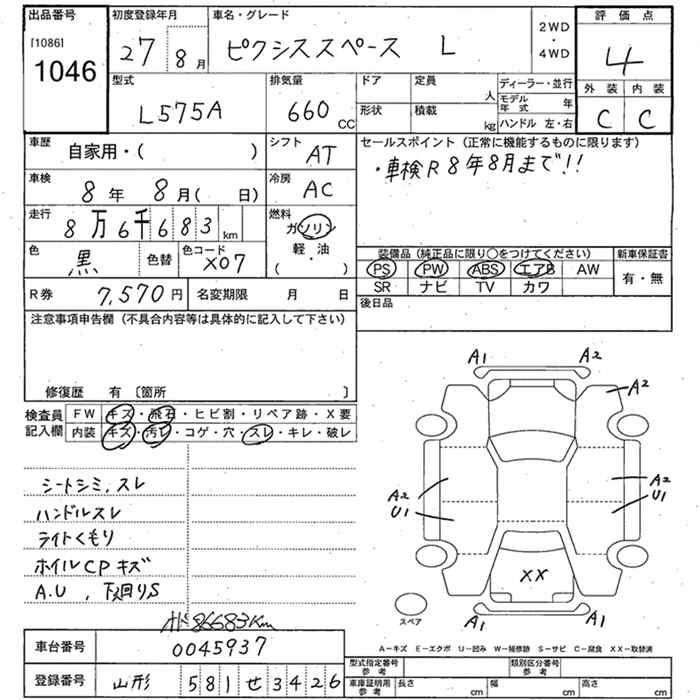 出品番号 初度登録年月 車名・グレード 2WD 評価点
[1086] 1046 27 8月 ピクシススペース L ・ 4WD 4
型式 排気量 ドア 定員 人 ディーラー・並行 外装 内装
L575A 660 CC 形状 積載 kg モデル年式 年 C C
ハンドル 左・右
車歴 自家用・( ) シフト AT セールスポイント(正常に機能するものに限ります)
・車検R8年8月まで!!
車検 8年 8月( 日) 冷房 AC
走行 8万6千683km 燃料 ガソリン
軽・油
( )
色 黒 色替 色コード X07
装備品(純正品に限り○をつけてください) 新車保証書
PS PW ABS エアB AW 有・無
SR ナビ TV カワ
R券 7,570円 名変期限 月 日 後日品
注意事項申告欄(不具合内容等は具体的に記入して下さい)
修復歴 有 〔箇所 〕
検査員 FW キズ・飛石・ヒビ割・リペア跡・X要
記入欄 内装 キズ・汚レ・コゲ・穴・スレ・キレ・破レ
シートシミ,スレ
ハンドルスレ
ライトくもり
ホイルCPキズ
A.U , 下廻りS
A1 A2
A2
A2 A2
U1 U1
XX
A1 A1
スペア
オド86683Km
A-キズ E-エクボ U-凹み W-補修跡 S-サビ C-腐食 XX-取替済
車台番号 0045937
登録番号 山形 581 せ 3426
型式指定番号 参考 類別区分番号 参考
車庫証明用 参考 長さ cm 幅 cm 高さ cm